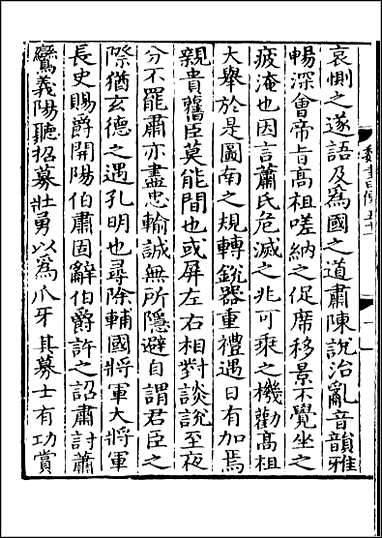 哀惻之遂語及爲國之道肅陳說治亂音韻雅
暢深會帝旨高祖嗟納之促席移景不覺坐之
疲淹也因言蕭氏危滅之兆可乘之機勸高祖
大舉於是圖南之規轉銳器重禮遇日有加焉
親貴舊臣莫能間也或屏左右相對談說至夜
分不罷肅亦盡忠輸誠無所隱避自謂君臣之
際猶玄德之遇孔明也尋除輔國將軍大將軍
長史賜爵開陽伯肅固辭伯爵許之詔肅討蕭
鸞義陽聽招募壯勇以爲爪牙其募士有功賞